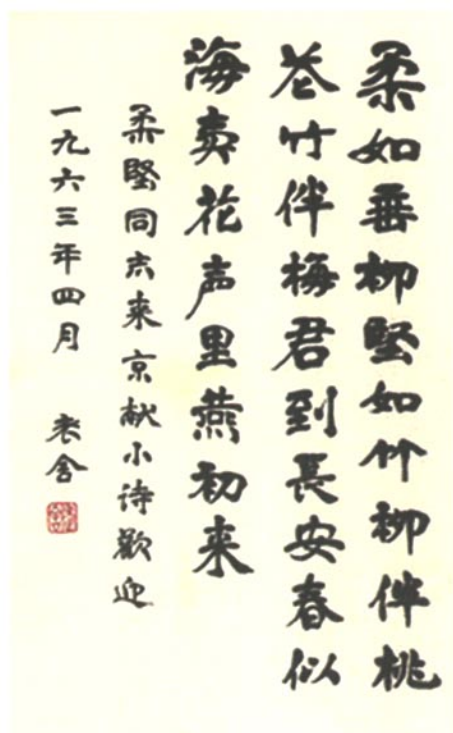 柔如垂柳堅如竹柳伴桃
花竹伴梅君到長安春似
海卖花声里燕初来
柔堅同志来京献小诗歡迎
一九六三年四月 老舍